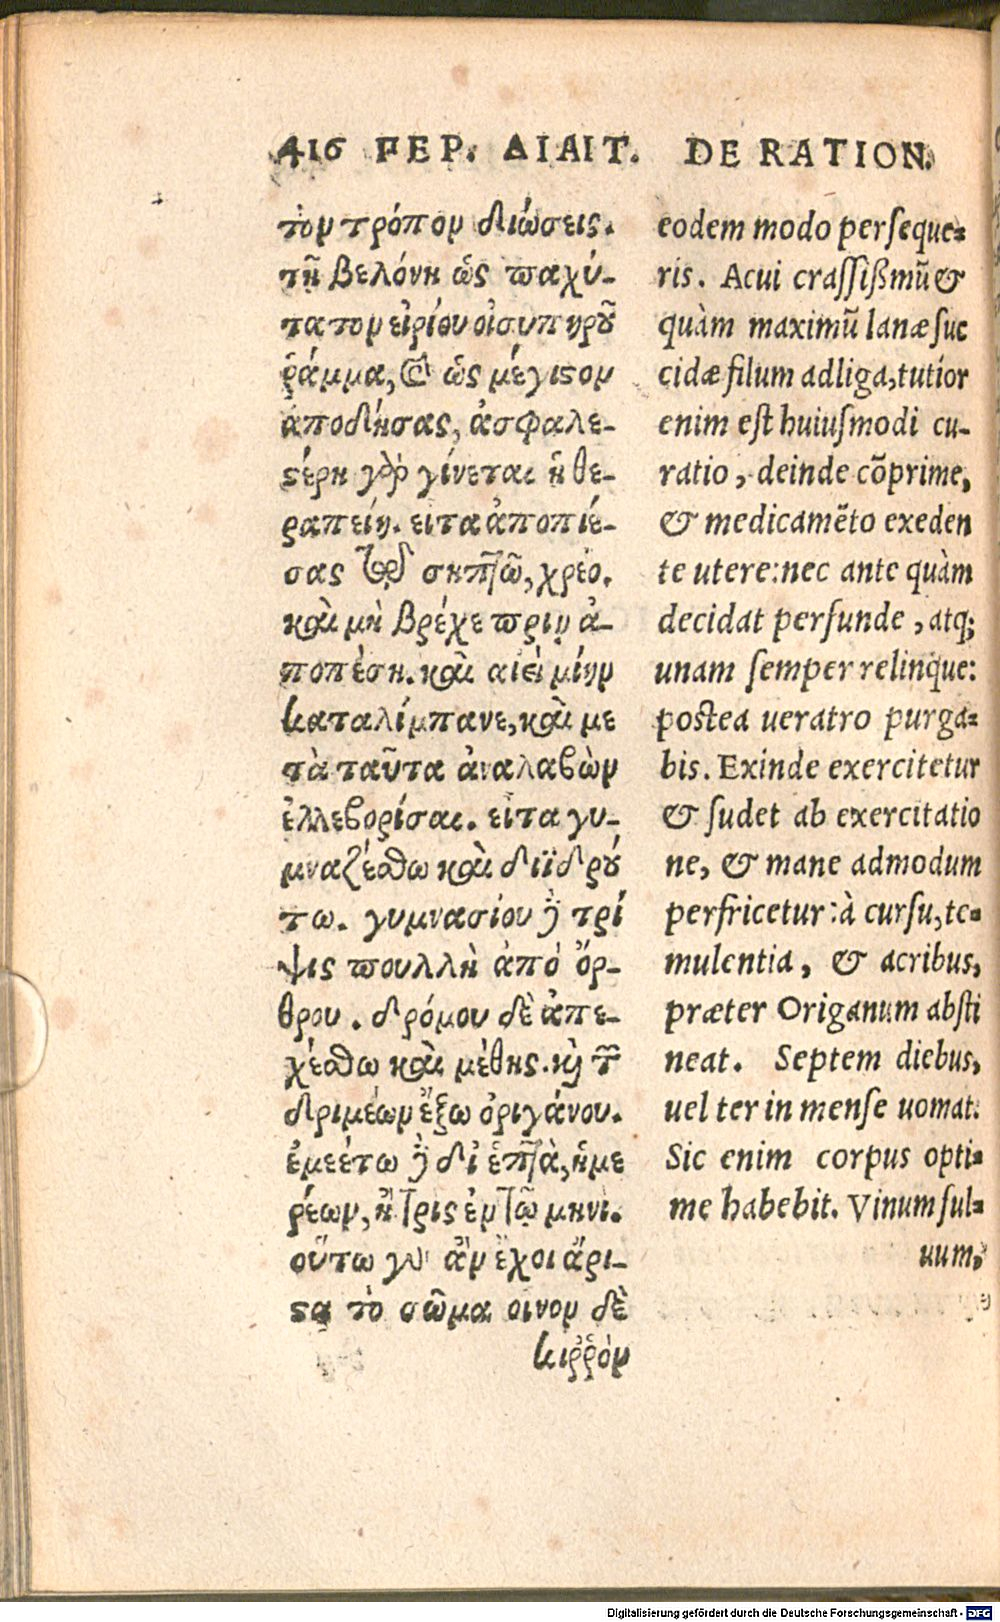 416 ΠΕΡ. ΔΙΑΙΤ. DE RATION.
τὸν τρόπον διώσεις.
τῇ βελόνῃ ὡς παχύ-
τατον εἰρίου οἰσυπηροῦ
ῥάμμα, καὶ ὡς μέγιστον
ἀποδήσας, ἀσφαλε-
στέρη γὰρ γίνεται ἡ θε-
ραπείη. εἶτα ἀποπιέ-
σας τῷ σηπτῷ, χρέο.
καὶ μὴ βρέχε πρὶν ἀ-
ποπέσῃ. καὶ αἰεὶ μίην
καταλίμπανε, καὶ με
τὰ ταῦτα ἀναλαβὼν
ἐλλεβορίσαι. εἶτα γυ-
μναζέσθω καὶ διϊδρού
τω. γυμνασίου δὲ τρί
ψις πουλλὴ ἀπὸ ὄρ-
θρου. δρόμου δὲ ἀπε-
χέσθω καὶ μέθης. καὶ τῶν
δριμέων ἔξω ὀριγάνου.
ἐμεέτω δὲ δι ἑπτὰ, ἡμε
ρέων, ἢ τρὶς ἐν τῷ μηνί.
οὕτω γὰρ ἂν ἔχοι ἄρι-
στα τὸ σῶμα οινον δὲ
κιῤῥὸν
eodem modo perseque-
ris. Acui crassißmũ &
quàm maximũ lanæ suc
cidæ filum adliga, tutior
enim est huiusmodi cu-
ratio, deinde cõprime,
& medicamẽto exeden
te utere: nec ante quàm
decidat perfunde, atq;
unam semper relinque:
postea ueratro purga-
bis. Exinde exercitetur
& sudet ab exercitatio
ne, & mane admodum
perfricetur: à cursu, te-
mulentia, & acribus,
præter Origanum absti
neat. Septem diebus,
uel ter in mense uomat.
Sic enim corpus opti-
me habebit. Vinum ful-
uum,
Digitalisierung gefördert durch die Deutsche Forschungsgemeinschaft - DFG